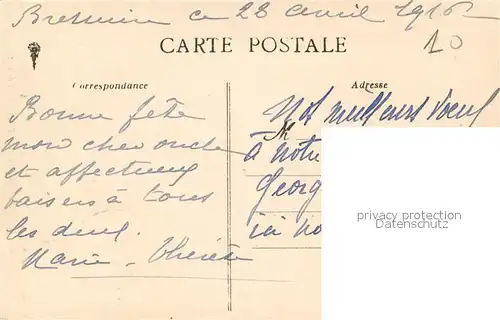 Bressuire ce 28 avril 1916
10
CARTE POSTALE
Correspondance
Adresse
Bonne fête
mon cher oncle
et affectueux
baisers à tous
les deux.
Marie-Thérèse
Nos meilleurs voeux
M
à notre
Georg
ici no
privacy protection
Datenschutz